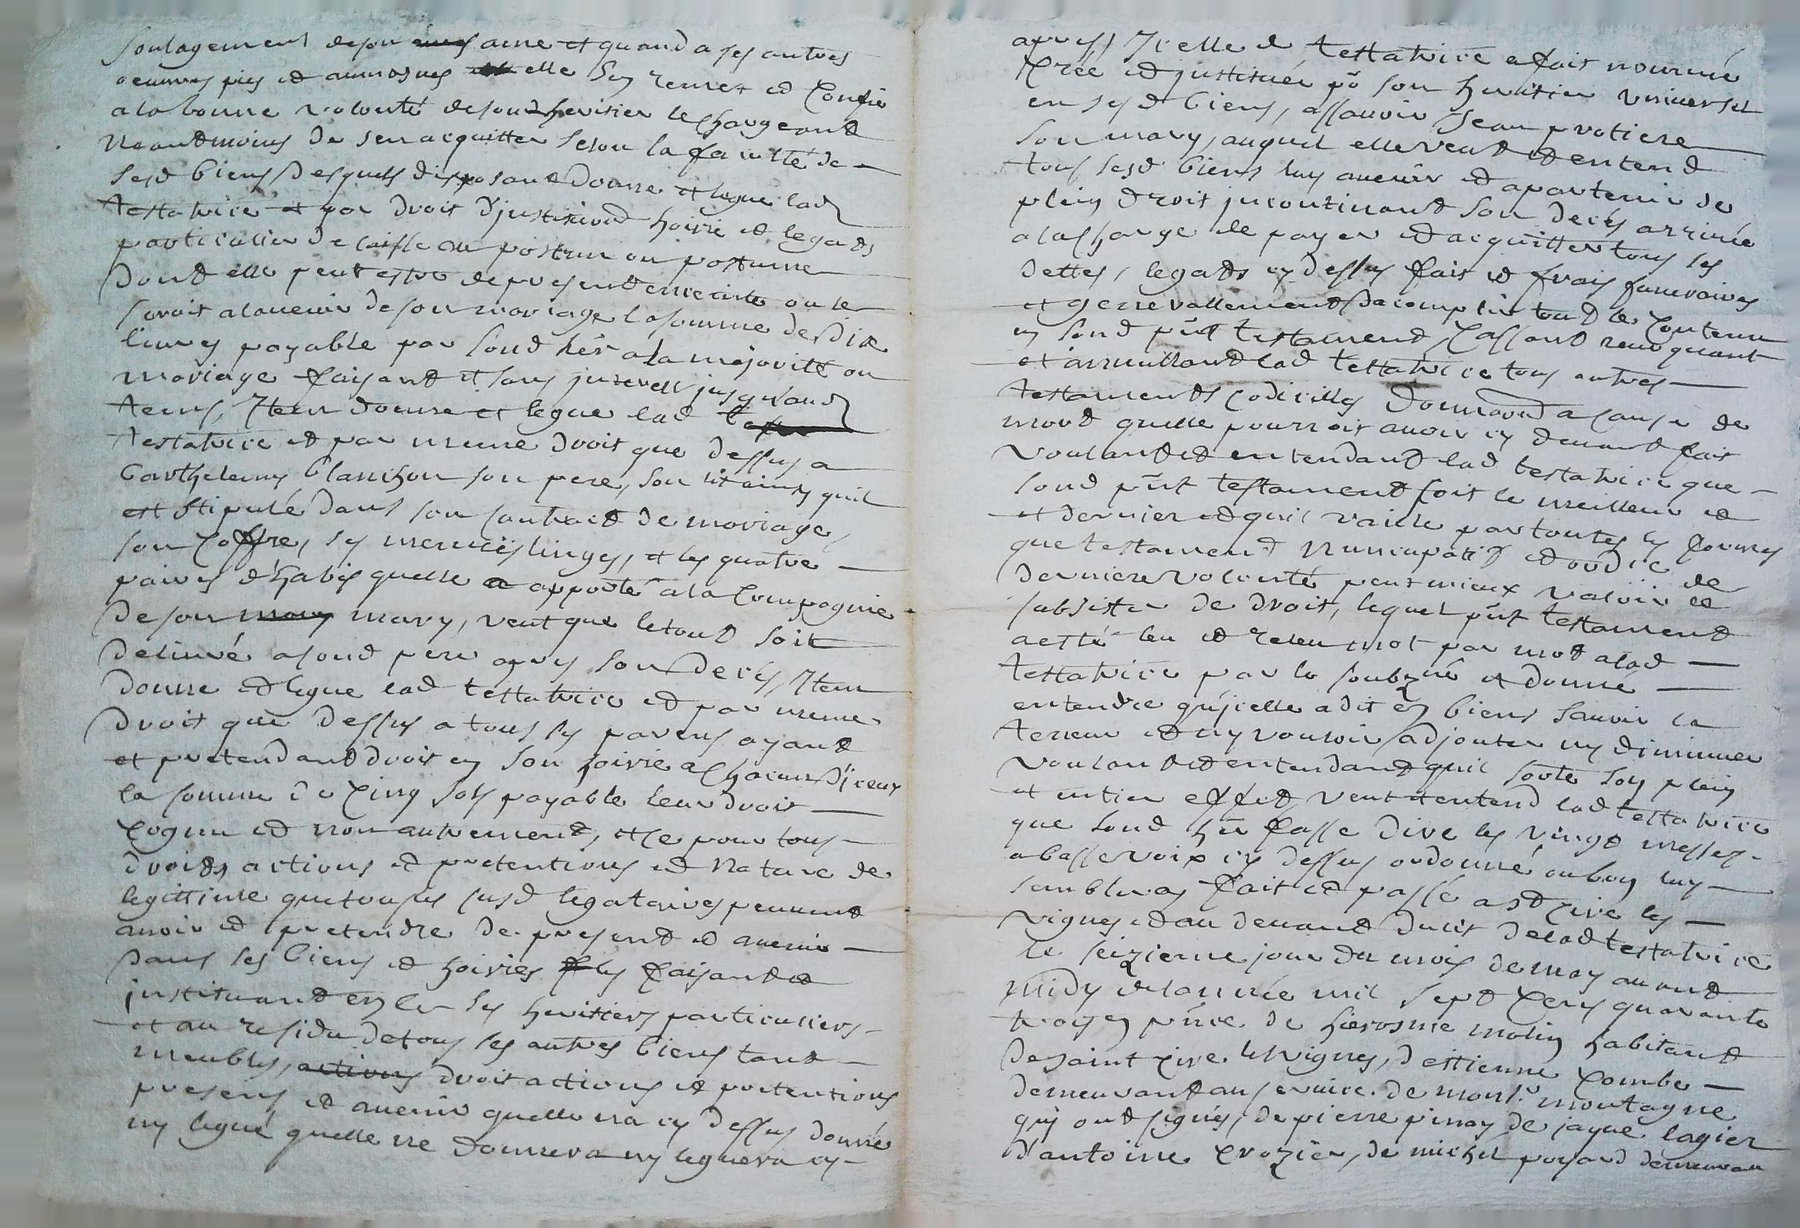 soulagement de son ame et quand a ses autres
oeuvres pies et aumosnes elle sen remet et confie
a la bonne volonté de sond heritier le chargeant
neantmoins de sen acquitter selon la faculté de
sesd biens desquels disposant donne et legue lad
testatrice et par droit d'justitution hoirie et legads
particulier delaisse au postum ou postume
dont elle peut estre de present enceinte ou le
seroit a lavenir de son mariage la somme de dix
livres payable par sond hér a la majorité ou
mariage faisant et sans jnterest jusqu'aud
tems, Item donne et legue lad
testatrice et par meme droit que dessus a
barthelemy blanchon son pere, son lit ainsy quil
est stipulé dans son contract de mariage,
son coffre, ses menües linges, et les quatre
paires d'habis quelle a apporté a la compagnie
de son mary, veut que le tout soit
delivré a sond pere apres son deces, Item
donne et legue lad testatrice et par meme
droit que dessus a tous ses parens ayant
et pretendant droit en son hoirie a chacun d'jceux
la somme de cinq sols payable leur droit
cognu et non autrement, et ce pour tous
droits actions et pretentions et nature de
legittime que tous les susd legataires peuvent
avoir et pretendre de present et avenir
dans ses biens et hoiries les faisant et
jnstituant en ce ses heritiers particuliers
et au residu de tous ses autres biens tant
meubles, actions droit actions et pretentions
presens et avenir quelle na cy dessus donné
ny legué quelle ne donnera ny leguera cy
apres Icelle d testatrice a fait nommé
créé et jnstitué po son heritier universel
en sesd biens, assavoir Jean protiere
son mary, auquel elle veut et entend
tous sesd biens luy avenir et apartenir de
plein droit jncontinant son decès arrivée
a la charge de payer et acquitter tous ses
dettes, legads cy dessus fait et frais funeraires
et generallement d'acomplir tout le contenu
en sond pnt testament, cassant revoquant
et annullant lad testatrice tous autres
testaments codicilles donnations a cause de
mort quelle pourroit avoir cy devant fait
voulant et entendant lad testatrice que
sond pnt testament soit le meilleur et
et dernier et quil vaille par toutes les formes
que testament nuncupatif et ordre de
derniere volonté peut mieux valoir et
subsister de droit, lequel pnt testament
a esté leu et releu mot par mot a lad
testatrice par le soubzné et donné
entendre qu'jcelle a dit en biens savoir la
teneur et ny vouloir adjouter ny diminuer
voulant et entendant quil sorte son plein
et entier effet, veut et entend lad testatrice
que sond hér fasse dire les vingt messes
a basse voix cy dessus ordonné ou bon luy
semblera, fait et passé a st cire les
vignes et au devant du lit de lad testatrice
le seizieme jour du mois de may avant
midy de l'année mil sept cens quarante
trois en pnce de hierosme molin habitant
de saint cire les vignes, d'ettienne combe
demeurant au service de monsr montagne
qui ont signés, de pierre pinay de jayne lagier
d'antoine crozier, de michel poyard demeurant